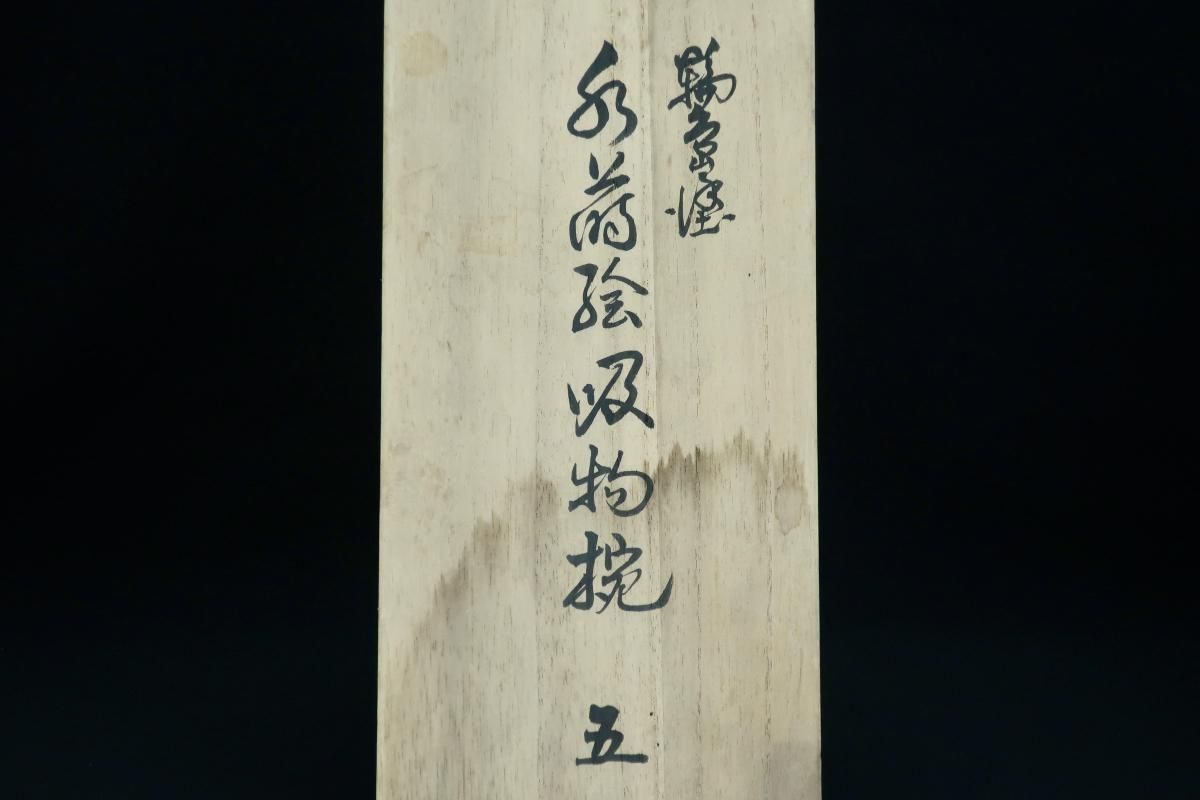 輪島塗
蒔絵吸物椀 五